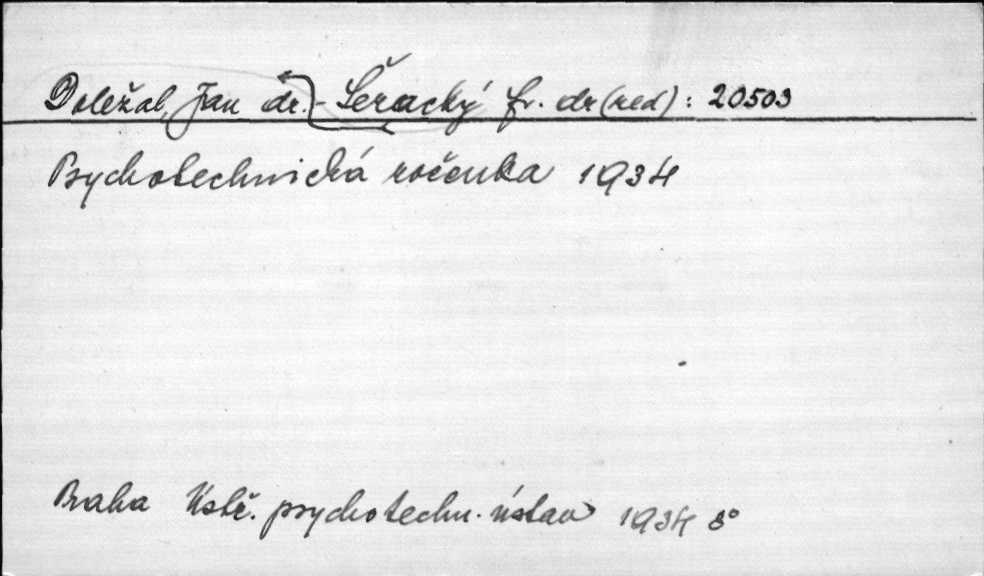 Doležal, Jan dr. - Šeracký fr. dr (red): 20503
Psychotechnická ročenka 1934
Praha Ústř. psychotechn. ústav 1934 8°